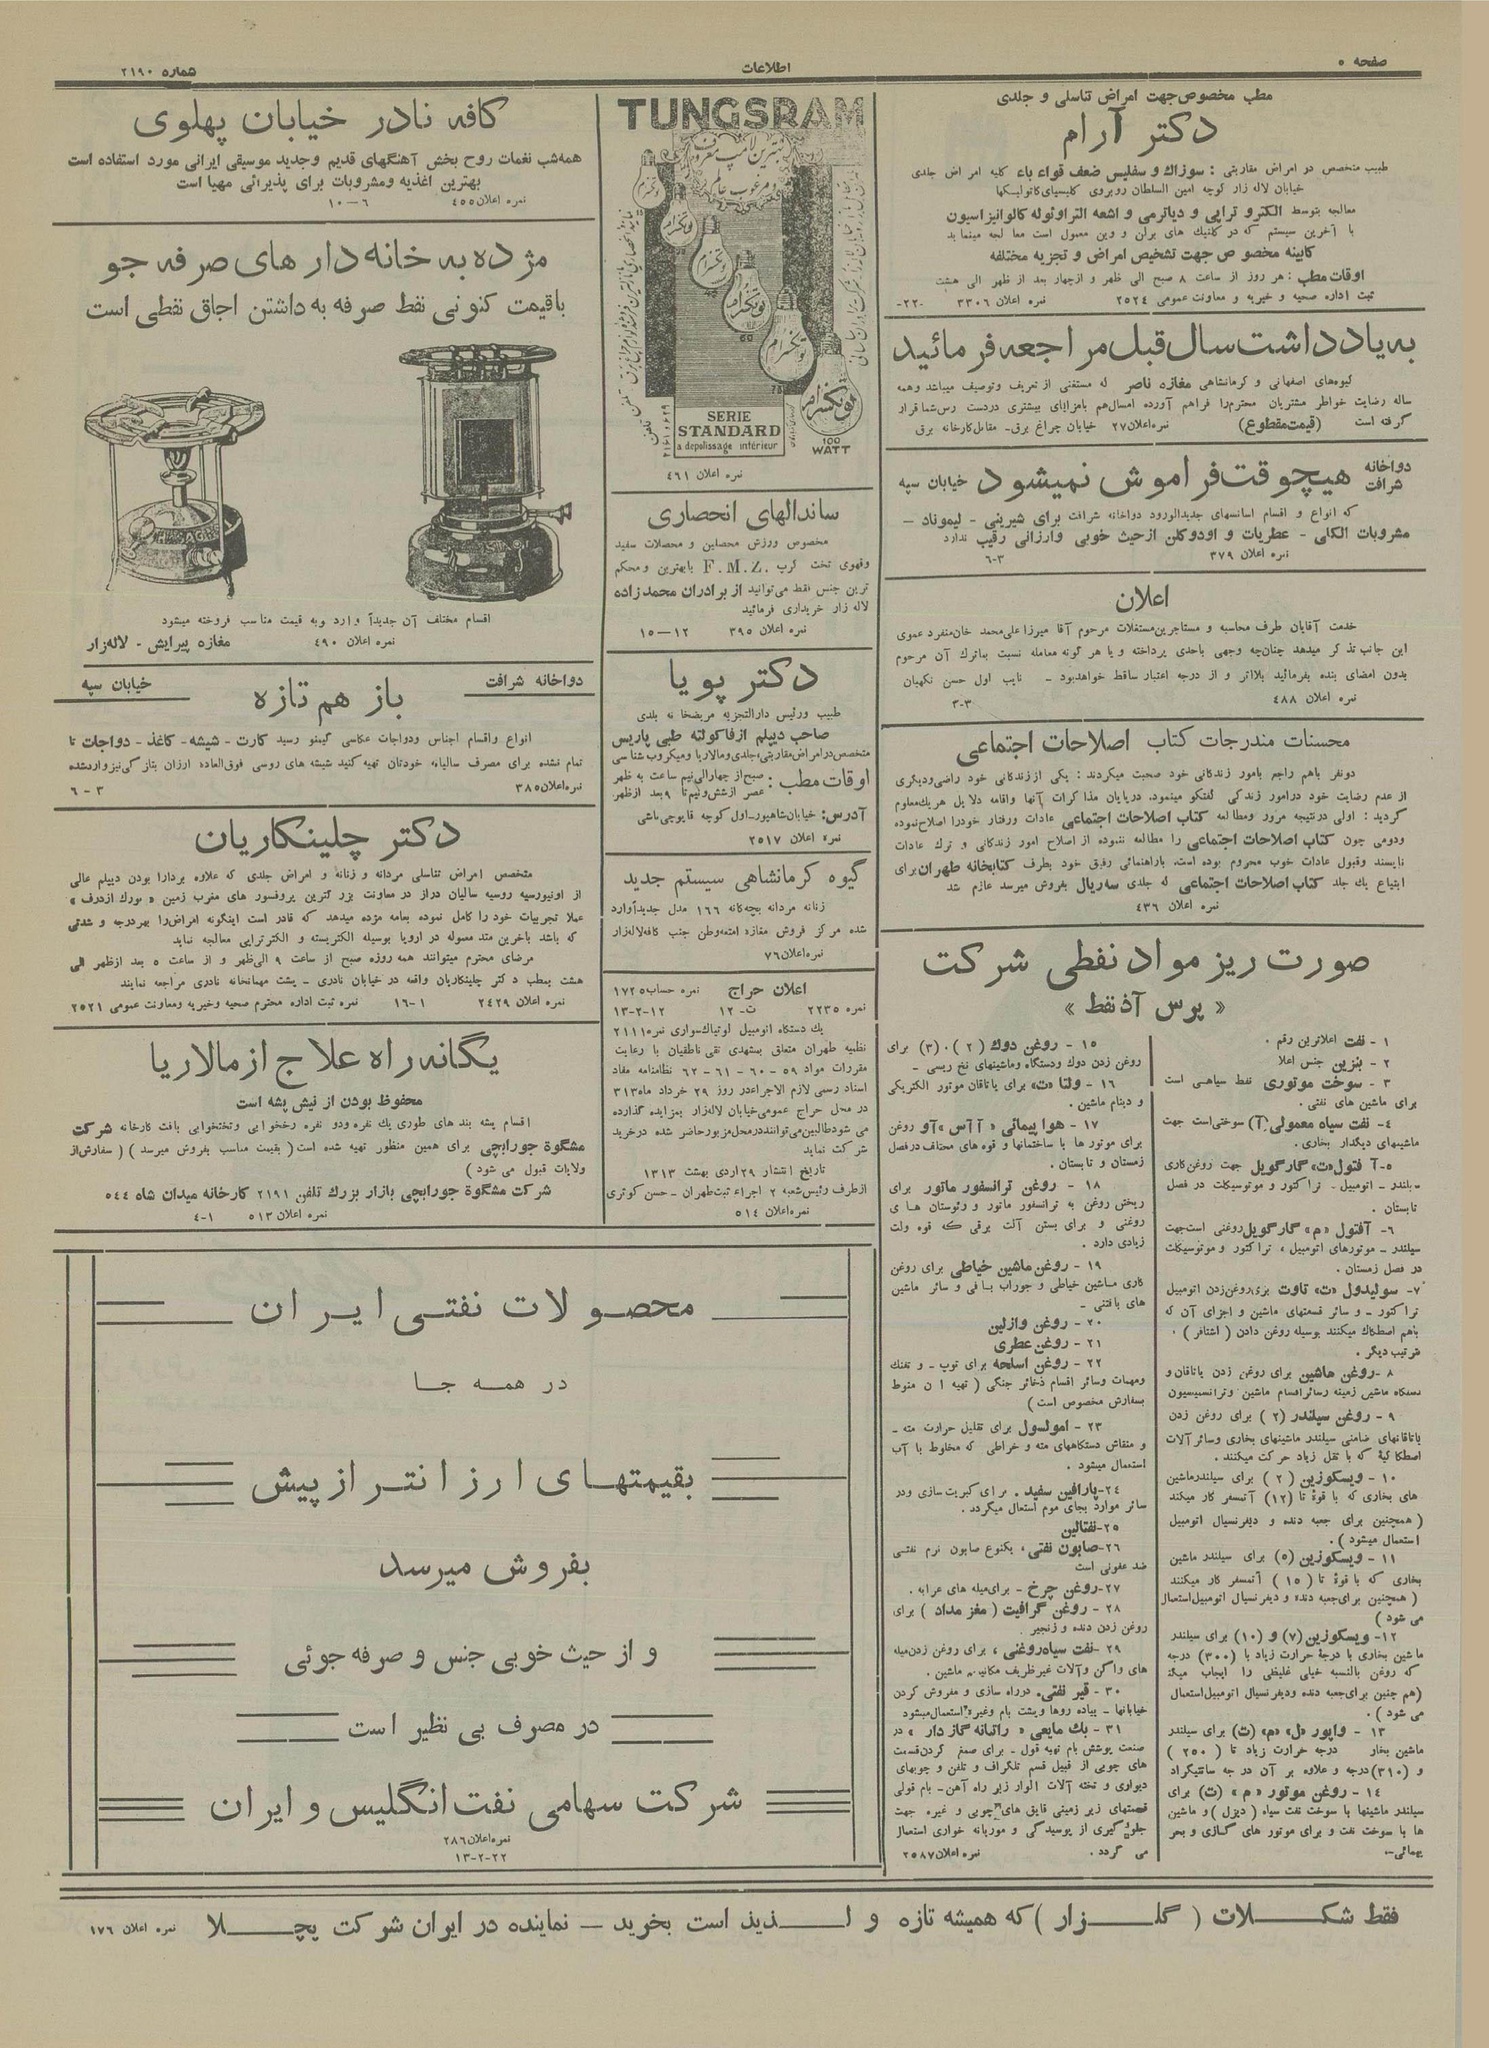 صفحه ٥
اطلاعات
شماره ٢١٩٠
مطب مخصوص جهت امراض تناسلی و جلدی
دکتر آرام
طبیب متخصص در امراض مقاربتی : سوزاك و سفلیس ضعف قواء باء کلیه امراض جلدی
خیابان لاله زار کوچه امین السلطان روبروی کلیسیای کاتولیکها
معالجه بتوسط الکترو تراپی و دیاترمی و اشعه التراوئوله کالوانیزاسیون
با آخرین سیستم که در کلنیك های برلن و وین معمول است معا لجه مینماید
کابینه مخصوص جهت تشخیص امراض و تجزیه مختلفه
اوقات مطب : هر روز از ساعت ٨ صبح الی ظهر و ازچهار بعد از ظهر الی هشت
ثبت اداره صحیه و خیریه و معاونت عمومی ٢٥٢٤ نمره اعلان ٣٣٠٦ -٢٢-
به یادداشت سال قبل مراجعه فرمائید
گیوه‌های اصفهانی و کرمانشاهی مغازه ناصر که مستغنی از تعریف وتوصیف میباشد وهمه
ساله رضایت خواطر مشتریان محترم‌را فراهم آورده امسال‌هم بامزایای بیشتری دردست رس‌شما قرار
گرفته است (قیمت مقطوع) نمره اعلان ٢٧ خیابان چراغ برق- مقابل کارخانه برق
دواخانه شرافت هیچوقت فراموش نمیشود خیابان سپه
که انواع و اقسام اسانسهای جدیدالورود دواخانه شرافت برای شیرینی - لیموناد -
مشروبات الکلی - عطریات و اودوکلن ازحیث خوبی وارزانی رقیب ندارد
نمره اعلان ٣٧٩ ٣-٦
اعلان
خدمت آقایان طرف محاسبه و مستاجرین مستغلات مرحوم آقا میرزا علی‌محمد خان منفرد عموی
این جانب تذکر میدهد چنانچه وجهی باحدی پرداخته و یا هر گونه معامله نسبت بماترك آن مرحوم
بدون امضای بنده بفرمائید بلااثر و از درجه اعتبار ساقط خواهدبود - نایب اول حسن نگهبان
نمره اعلان ٤٨٨ ٣-٣
محسنات مندرجات کتاب اصلاحات اجتماعی
دونفر باهم راجع بامور زندگانی خود صحبت میکردند : یکی اززندگانی خود راضی‌ودیگری
از عدم رضایت خود درامور زندگی گفتگو مینمود، درپایان مذاکرات آنها واقامه دلایل هریك‌معلوم
گردید : اولی درنتیجه مرور ومطالعه کتاب اصلاحات اجتماعی عادات ورفتار خودرا اصلاح‌نموده
ودومی چون کتاب اصلاحات اجتماعی را مطالعه ننموده از اصلاح امور زندگانی و ترك عادات
ناپسند وقبول عادات خوب محروم بوده است، باراهنمائی رفیق خود بطرف کتابخانه طهران برای
ابتیاع یك جلد کتاب اصلاحات اجتماعی که جلدی سه‌ریال بفروش میرسد عازم شد
نمره اعلان ٤٣٦
صورت ریز مواد نفطی شرکت
« پرس آذ نفط »
١ - نفت اعلاترین رقم .
٢ - بنزین جنس اعلا
٣ - سوخت موتوری نفط سیاهی است
برای ماشین های نفتی .
٤- نفت سیاه معمولی (آ) سوختی‌است جهت
ماشینهای دیگدار بخاری.
٥- آفتول «ت» گارگویل جهت روغن‌کاری
سیلندر - اتومبیل - تراکتور و موتوسیکلت در فصل
تابستان .
٦- آفتول «م» گارگویل روغنی است‌جهت
سیلندر - موتورهای اتومبیل ، تراکتور و موتوسیکلت
در فصل زمستان .
٧- سولیدول «ت» تاوت برای‌روغن‌زدن اتومبیل
تراکتور - و سائر قسمتهای ماشین و اجزای آن که
باهم اصطکاك میکنند بوسیله روغن دادن ( اشتافر ) .
ترتیب دیگر .
٨ -روغن ماشین برای روغن زدن یاتاقان و
دستگاه ماشین زمینه وسائراقسام ماشین وترانسمیسیون
٩ - روغن سیلندر (٢) برای روغن زدن
یاتاقانهای ضامنی سیلندر ماشینهای بخاری وسائرآلات
اصطکاکیهٔ که با ثقل زیاد حرکت میکنند .
١٠ - ویسکوزین (٢) برای سیلندرماشین
های بخاری که با قوهٔ تا (١٢) آتمسفر کار میکند
( همچنین برای جعبه دنده و دیفرنسیال اتومبیل
استعمال میشود ) .
١١ - ویسکوزین (٥) برای سیلندر ماشین
بخاری که با قوهٔ تا (١٥) آتمسفر کار میکنند
( همچنین برای‌جعبه دنده و دیفرنسیال اتومبیل‌استعمال
می شود )
١٢- ویسکوزین (٧) و (١٠) برای سیلندر
ماشین بخاری با درجهٔ حرارت زیاد با (٣٠٠) درجه
که روغن بالنسبه خیلی غلیظی را ایجاب میکند
(هم چنین برای‌جعبه دنده ودیفرنسیال اتومبیل‌استعمال
می شود ) .
١٣ - واپور «ل» «م» (ت) برای سیلندر
ماشین بخار درجه حرارت زیاد تا (٢٥٠)
و (٣١٠) درجه و علاوه بر آن در جه سانتیگراد
١٤ - روغن موتور «م» (ت) برای
سیلندر ماشینها با سوخت نفت سیاه (دیزل) و ماشین
ها با سوخت نفت و برای موتور های گازی و بحر
پیمائی-.
١٥ - روغن دوك (٢) . (٣) برای
روغن زدن دوك ودستگاه وماشینهای نخ ریسی -
١٦ - ولتا «ت» برای یاتاقان موتور الکتریکی
و دینام ماشین .
١٧ - هوا پیمائی «آآس» آو روغن
برای موتور ها با ساختمانها و قوه های مختلف در فصل
زمستان و تابستان .
١٨ - روغن ترانسفور ماتور برای
ریختن روغن به ترانسفور ماتور و رئوستان های
روغنی و برای بستن آلت برقی که قوه ولت
زیادی دارد .
١٩ - روغن ماشین خیاطی برای روغن
کاری ماشین خیاطی و جوراب بافی و سائر ماشین
های بافتنی -
٢٠ - روغن وازلین
٢١ - روغن عطری
٢٢ - روغن اسلحه برای توپ - و تفنك
ومهمات وسائر اقسام ذخائر جنگی ( تهیه ان منوط
بسفارش مخصوص است )
٢٣ - امولسول برای تقلیل حرارت مته -
و منقاش دستگاههای مته و خراطی که مخلوط با آب
استعمال میشود .
٢٤ -پارافین سفید . برای کبریت سازی ودر
سائر موارد بجای موم استعمال میگردد .
٢٥-نفتالین
٢٦-صابون نفتی ، یکنوع صابون نرم نفتی
ضد عفونی است
٢٧-روغن چرخ - برای‌میله های عرابه .
٢٨ - روغن گرافیت ( مغز مداد ) برای
روغن زدن دنده و زنجیر .
٢٩ -نفت سیاه‌روغنی ، برای روغن زدن‌میله
های واگن وآلات غیرظریف مکانیه ماشین .
٣٠ - قیر نفتی. درراه سازی و مفروش کردن
خیابانها - پیاده روها وپشت بام وغیره استعمال‌میشود
٣١ - بك مایعی « راتیانه گاز دار » در
صنعت پوشش بام تهیه قول - برای صمغ کردن‌قسمت
های چوبی از قبیل قسم تلگراف و تلفن و چوبهای
دیواری و تخته آلات الوار زیر راه آهن - بام قولی
قسمتهای زیر زمینی قایق های چوبی و غیره جهت
جلوگیری از پوسیدگی و موریانه خواری استعمال
می گردد . نمره اعلان ٢٥٨٧
TUNGSRAM
بهترین لامپ معروف
و مرغوب عالم
تونگسرام
60
75
SERIE
STANDARD
a depolissage intérieur
100
WATT
نمره اعلان ٤٦١
ساندالهای انحصاری
مخصوص ورزش محصلین و محصلات سفید
وقهوی تخت کرپ F.M.Z. بابهترین و محکم
ترین جنس فقط می‌توانید از برادران محمدزاده
لاله زار خریداری فرمائید
نمره اعلان ٣٩٥ ١٢-١٥
دکتر پویا
طبیب ورئیس دارالتجزیه مریضخانه بلدی
صاحب دیپلم ازفاکولته طبی پاریس
متخصص درامراض مقاربتی، جلدی ومالاریا ومیکروب شناسی
اوقات مطب : صبح از چهارالی‌نیم ساعت به ظهر
عصر ازشش‌ونیم تا ٩ بعد ازظهر
آدرس: خیابان‌شاهپور-اول کوچه قاپوچی‌باشی
نمره اعلان ٢٥١٧
گیوه کرمانشاهی سیستم جدید
زنانه مردانه بچه‌گانه ١٦٦ مدل جدیدآوارد
شده مرکز فروش مغازه امتعه‌وطن جنب کافه‌لاله‌زار
نمره‌اعلان٧٦
اعلان حراج نمره حساب١٧٢٥
نمره ٢٢٣٥ ت- ١٢ ١٣-٢-١٢
یك دستگاه اتومبیل اونیاك‌سواری نمره٢١١١
نظمیه طهران متعلق بمشهدی تقی ناطقیان با رعایت
مقررات مواد ٥٩ - ٦٠ - ٦١ - ٦٢ نظامنامه مفاد
اسناد رسمی لازم الاجراء‌در روز ٢٩ خرداد ماه٣١٣
در محل حراج عمومی‌خیابان لاله‌زار بمزایده گذارده
می شودطالبین‌می‌توانند درمحل‌مزبورحاضر شده درخرید
شرکت نماید
تاریخ انتشار ٢٩اردی بهشت ١٣١٣
ازطرف رئیس‌شعبه ٢ اجراء ثبت‌طهران- حسن کوثری
نمره‌اعلان ٥١٤
کافه نادر خیابان پهلوی
همه‌شب نغمات روح بخش آهنگهای قدیم وجدید موسیقی ایرانی مورد استفاده است
بهترین اغذیه ومشروبات برای پذیرائی مهیا است
نمره اعلان٤٥٥ ٦-١٠
مژده به خانه دار های صرفه جو
باقیمت کنونی نفط صرفه به داشتن اجاق نفطی است
اقسام مختلف آن جدیداً وارد وبه قیمت مناسب فروخته میشود
نمره اعلان ٤٩٠ مغازه پیرایش - لاله‌زار
دواخانه شرافت باز هم تازه خیابان سپه
انواع واقسام اجناس ودواجات عکاسی گیمنو رسید کارت - شیشه - کاغذ - دواجات تا
تمام نشده برای مصرف سالیانه خودتان تهیه کنید شیشه های روسی فوق‌العاده ارزان بتازگی‌نیزواردشده
نمره‌اعلان٣٨٥ ٣-٦
دکتر چلینکاریان
متخصص امراض تناسلی مردانه و زنانه و امراض جلدی که علاوه بردارا بودن دیپلم عالی
از اونیورسیه روسیه سالیان دراز در معاونت بزر گترین پروفسور های مغرب زمین «نورك ازدرف»
عملا تجربیات خود را کامل نموده بعامه مژده میدهد که قادر است اینگونه امراض‌را بهردرجه و شدتی
که باشد باخرین متد معموله در اروپا بوسیله الکتریسته و الکترتراپی معالجه نماید
مرضای محترم میتوانند همه روزه صبح از ساعت ٩ الی‌ظهر و از ساعت ٥ بعد ازظهر الی
هشت بمطب دکتر چلینکاریان واقعه در خیابان نادری - پشت مهمانخانه نادری مراجعه نمایند
نمره اعلان ٢٤٢٩ ١-١٦ نمره ثبت اداره محترم صحیه وخیریه ومعاونت عمومی ٢٥٢١
یگانه راه علاج از مالاریا
محفوظ بودن از نیش پشه است
اقسام پشه بند های طوری یك نفره ودو نفره رختخوابی وتختخوابی بافت کارخانه شرکت
مشگوة جورابچی برای همین منظور تهیه شده است ( بقیمت مناسب بفروش میرسد ) ( سفارش‌از
ولایات قبول می شود )
شرکت مشگوة جورابچی بازار بزرك تلفن ٢١٩١ کارخانه میدان شاه ٥٤٤
نمره اعلان ٥١٣ ١-٤
محصولات نفتی ایران
در همه جا
بقیمتهای ارزانتر از پیش
بفروش میرسد
و از حیث خوبی جنس و صرفه جوئی
در مصرف بی نظیر است
شرکت سهامی نفت انگلیس و ایران
نمره‌اعلان٢٨٦
١٣-٢-٢٢
فقط شکلات ( گلزار ) که همیشه تازه و لذیذ است بخرید - نماینده در ایران شرکت پچلا نمره اعلان ١٧٦